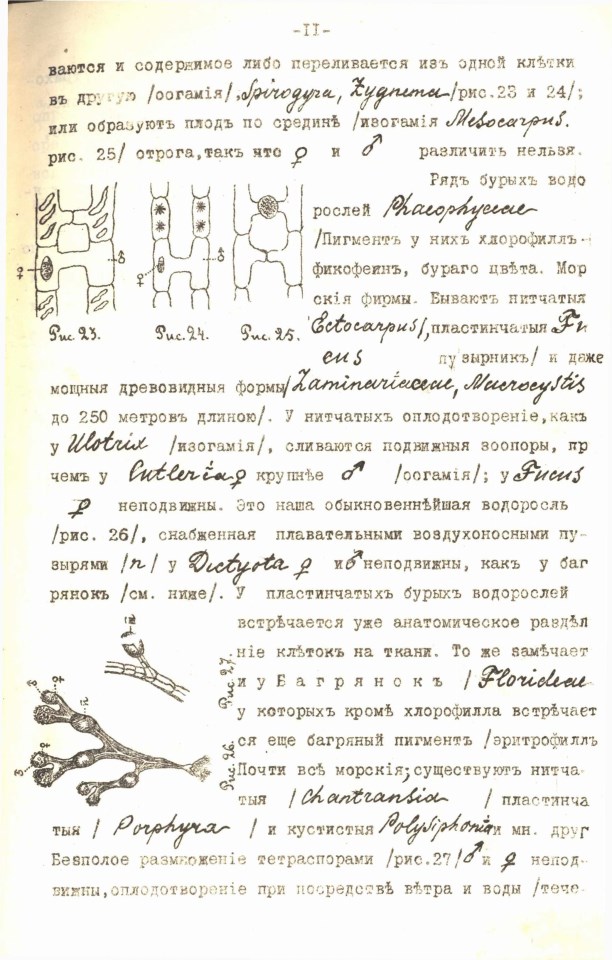 -II-
ваются и содержимое либо переливается изъ одной клѣтки
въ другую /оогамія/, Spirogyra, Zygnema /рис.23 и 24/;
или образуютъ плодъ по срединѣ /изогамія Mesocarpus.
рис. 25/ отрога,такъ что ♀ и ♂ различить нельзя.
Рядъ бурыхъ водо
рослей Phaeophyceae
/Пигментъ у нихъ хлорофиллъ-
фикофеинъ, бураго цвѣта. Мор
скія фирмы. Бываютъ нитчатыя
Ectocarpus/,пластинчатыя Fu
cus пузырникъ/ и даже
♀ ♂ ♀ ♂
Рис. 23. Рис. 24. Рис. 25.
мощныя древовидныя формы/Laminariaceae, Macrocystis
до 250 метровъ длиною/. У нитчатыхъ оплодотвореніе,какъ
у Ulotrix /изогамія/, сливаются подвижныя зоопоры, пр
чемъ у Cutleria ♀ крупнѣе ♂ /оогамія/; у Fucus
♀ неподвижны. Это наша обыкновеннѣйшая водоросль
/рис. 26/, снабженная плавательными воздухоносными пу-
зырями /п/ у Dictyota ♀ и ♂ неподвижны, какъ у баг
рянокъ /см. ниже/. У пластинчатыхъ бурыхъ водорослей
встрѣчается уже анатомическое раздѣл
ніе клѣтокъ на ткани. То же замѣчает
и у Б а г р я н о к ъ / Florideae
у которыхъ кромѣ хлорофилла встрѣчает
ся еще багряный пигментъ /эритрофиллъ
Почти всѣ морскія;существуютъ нитча-
тыя /Chantransia / пластинча
Рис. 27.
Рис. 26.
♂ ♀ п
♀ ♂
тыя / Porphyra / и кустистыя Polysiphonia и мн. друг
Безполое размноженіе тетраспорами /рис.27/ ♂ и ♀ непод-
вижны,оплодотвореніе при посредствѣ вѣтра и воды /тече-